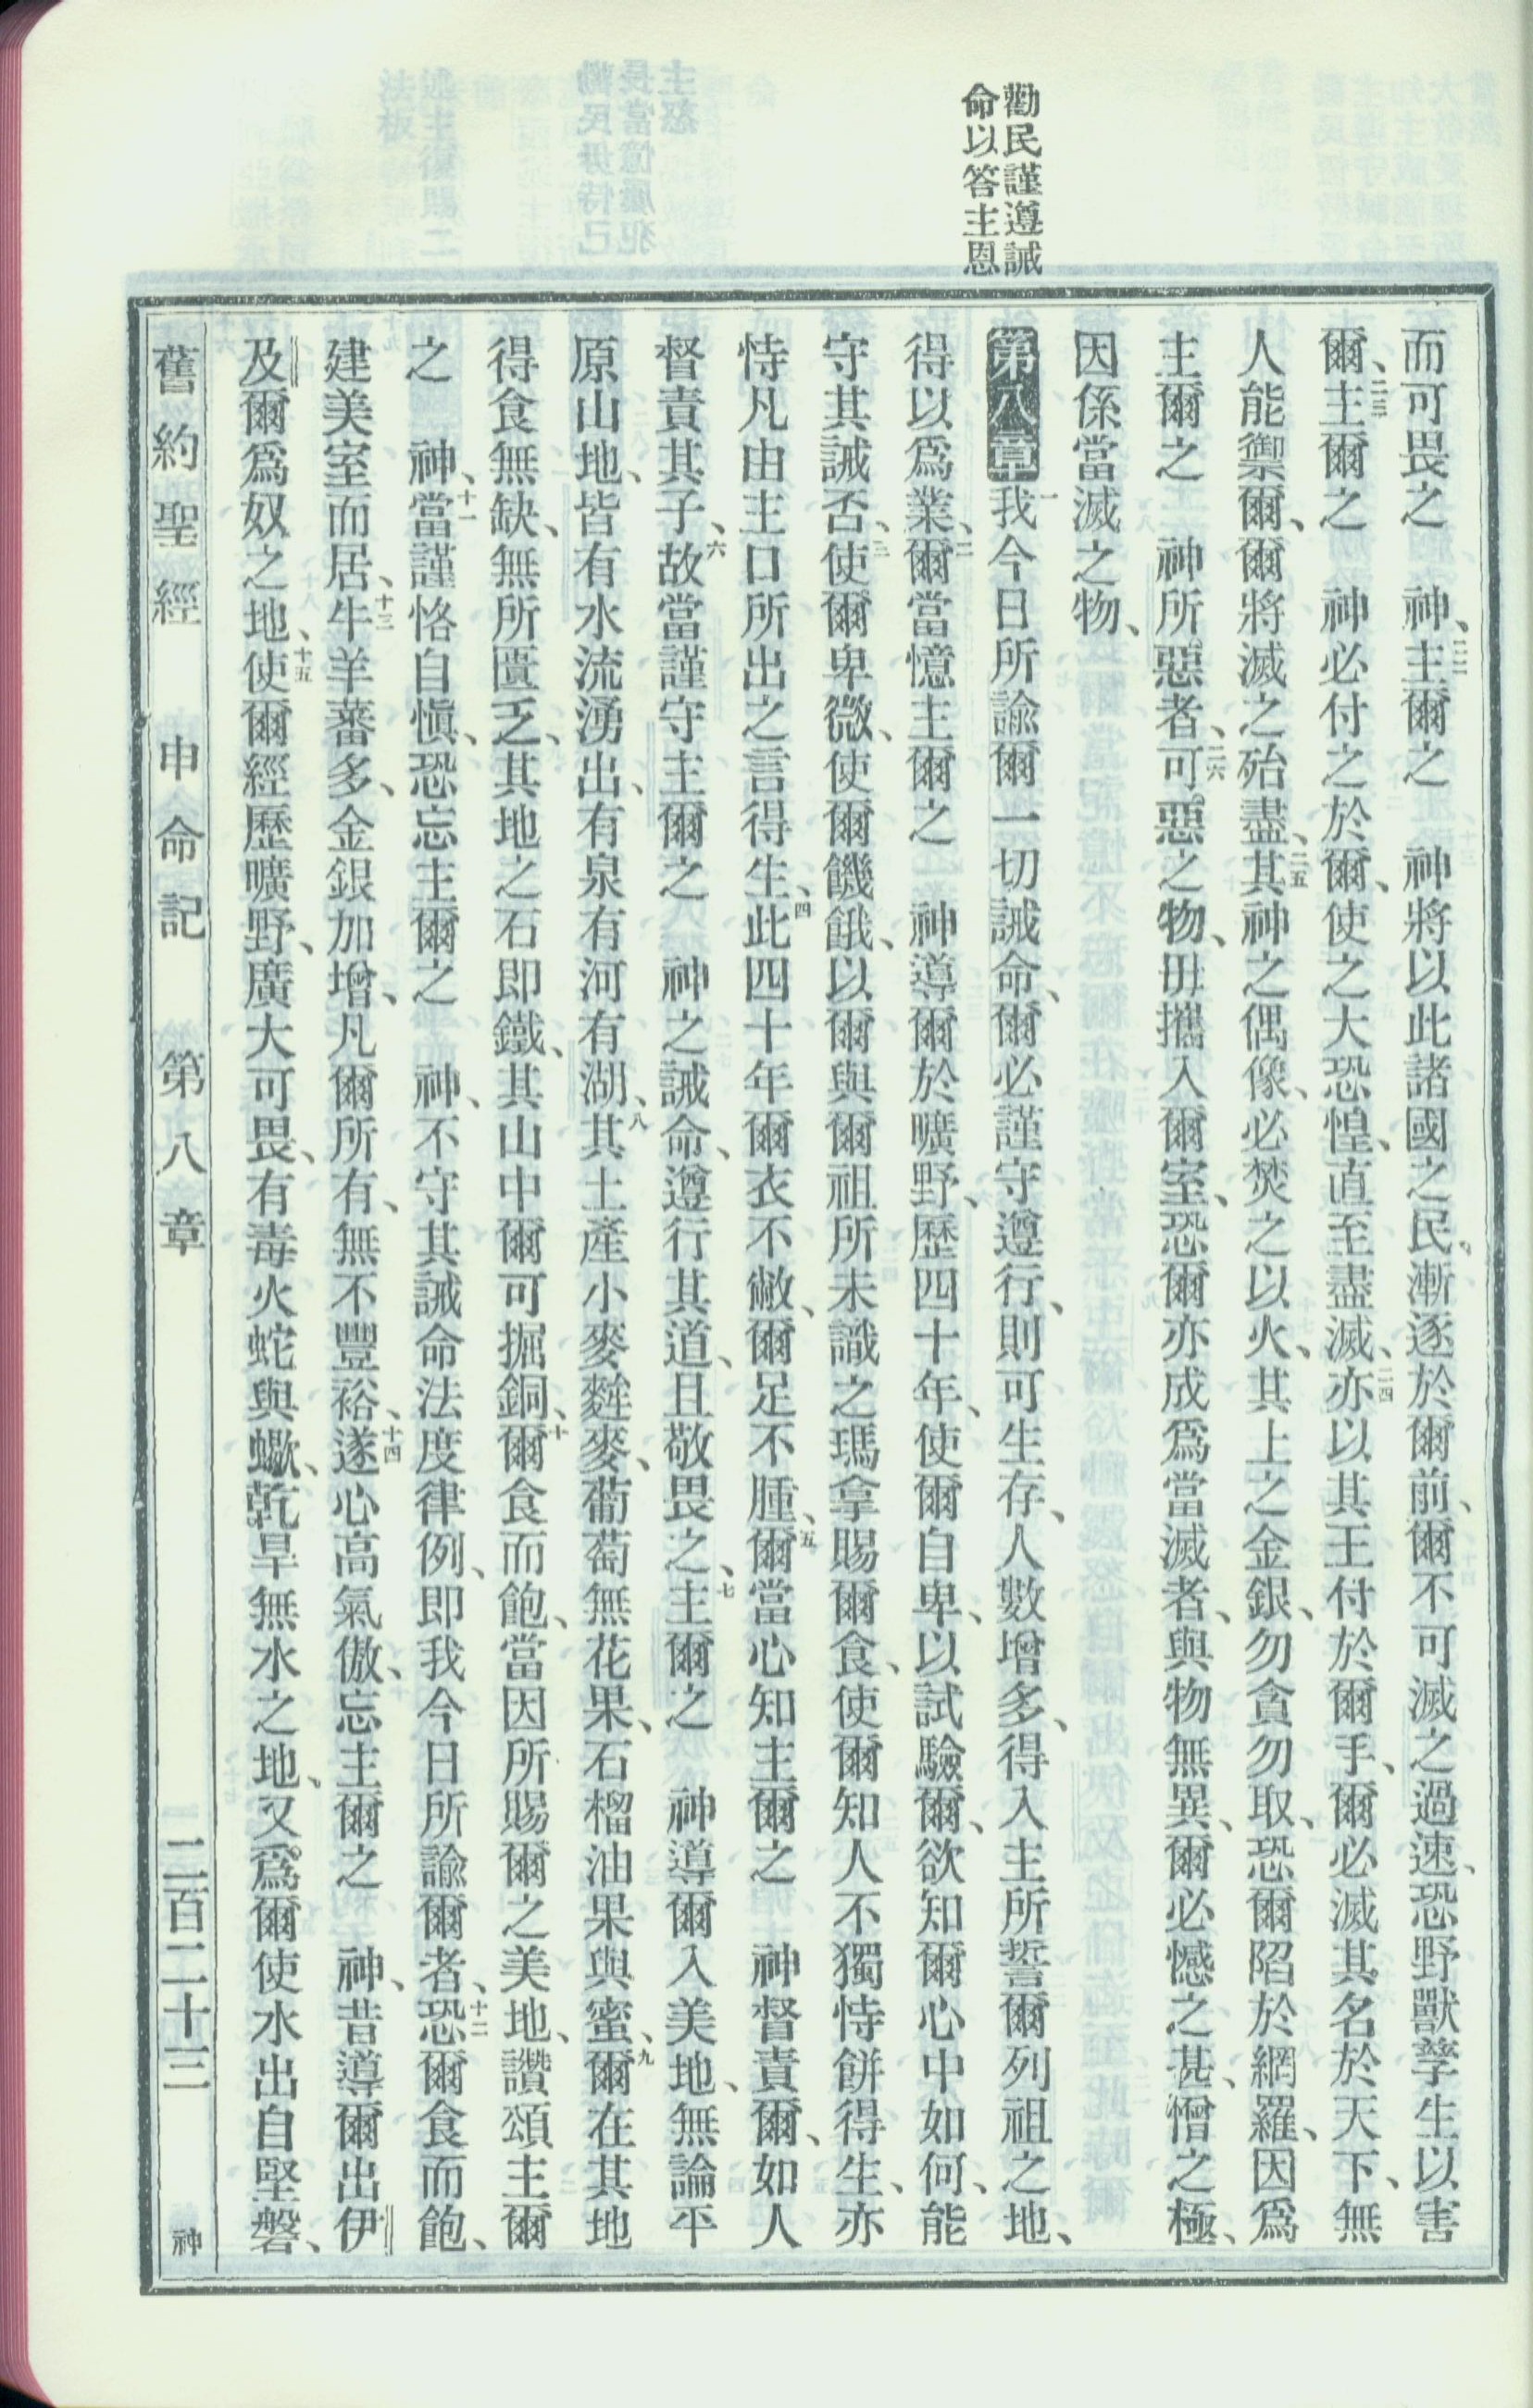 勸民謹遵誡
命以答主恩
而可畏之　神、二二主爾之　神將以此諸國之民、漸逐於爾前、爾不可滅之過速、恐野獸孳生以害
爾、二三主爾之　神必付之於爾、使之大恐惶、直至盡滅、二四亦以其王付於爾手、爾必滅其名於天下、無
人能禦爾、爾將滅之殆盡、二五其神之偶像、必焚之以火、其上之金銀、勿貪勿取、恐爾陷於網羅、因爲
主爾之　神所惡者、二六可惡之物、毋攜入爾室、恐爾亦成爲當滅者、與物無異、爾必憾之甚、憎之極、
因係當滅之物、
第八章一我今日所諭爾一切誡命、爾必謹守遵行、則可生存、人數增多、得入主所誓爾列祖之地、
得以爲業、二爾當憶主爾之　神導爾於曠野、歷四十年、使爾自卑、以試驗爾、欲知爾心中如何、能
守其誡否、三使爾卑微、使爾饑餓、以爾與爾祖所未識之瑪拿賜爾食、使爾知人不獨恃餅得生、亦
恃凡由主口所出之言得生、四此四十年爾衣不敝、爾足不腫、五爾當心知主爾之　神督責爾、如人
督責其子、六故當謹守主爾之　神之誡命、遵行其道、且敬畏之、七主爾之　神導爾入美地、無論平
原山地、皆有水流湧出、有泉有河有湖、八其土產小麥麰麥、葡萄無花果、石榴油果與蜜、九爾在其地
得食無缺、無所匱乏、其地之石即鐵、其山中爾可掘銅、十爾食而飽、當因所賜爾之美地、讚頌主爾
之　神、十一當謹恪自愼、恐忘主爾之　神、不守其誡命法度律例、即我今日所諭爾者、十二恐爾食而飽、
建美室而居、十三牛羊蕃多、金銀加增、凡爾所有、無不豐裕、十四遂心高氣傲、忘主爾之　神、昔導爾出伊
及爾爲奴之地、十五使爾經歷曠野、廣大可畏、有毒火蛇與蠍、乾旱無水之地、又爲爾使水出自堅磐、
舊約聖經　申命記　第八章　二百二十三　神